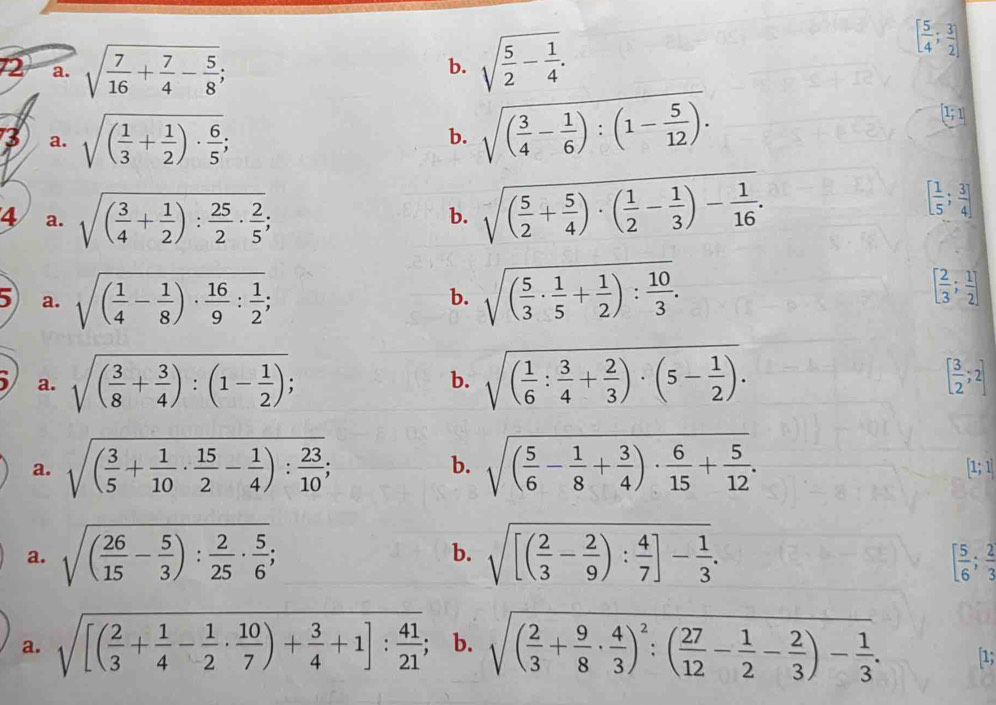 72 a. √(7/16 + 7/4 − 5/8); b. √(5/2 − 1/4). [5/4; 3/2]
73 a. √((1/3 + 1/2) · 6/5); b. √((3/4 − 1/6) : (1 − 5/12)). [1; 1]
4 a. √((3/4 + 1/2) : 25/2 · 2/5); b. √((5/2 + 5/4) · (1/2 − 1/3) − 1/16). [1/5; 3/4]
5 a. √((1/4 − 1/8) · 16/9 : 1/2); b. √((5/3 · 1/5 + 1/2) : 10/3). [2/3; 1/2]
6 a. √((3/8 + 3/4) : (1 − 1/2)); b. √((1/6 : 3/4 + 2/3) · (5 − 1/2)). [3/2; 2]
a. √((3/5 + 1/10 · 15/2 − 1/4) : 23/10); b. √((5/6 − 1/8 + 3/4) · 6/15 + 5/12). [1; 1]
a. √((26/15 − 5/3) : 2/25 · 5/6); b. √([(2/3 − 2/9) : 4/7] − 1/3). [5/6; 2/3
a. √([(2/3 + 1/4 − 1/2 · 10/7) + 3/4 + 1] : 41/21); b. √((2/3 + 9/8 · 4/3)² : (27/12 − 1/2 − 2/3) − 1/3). [1;